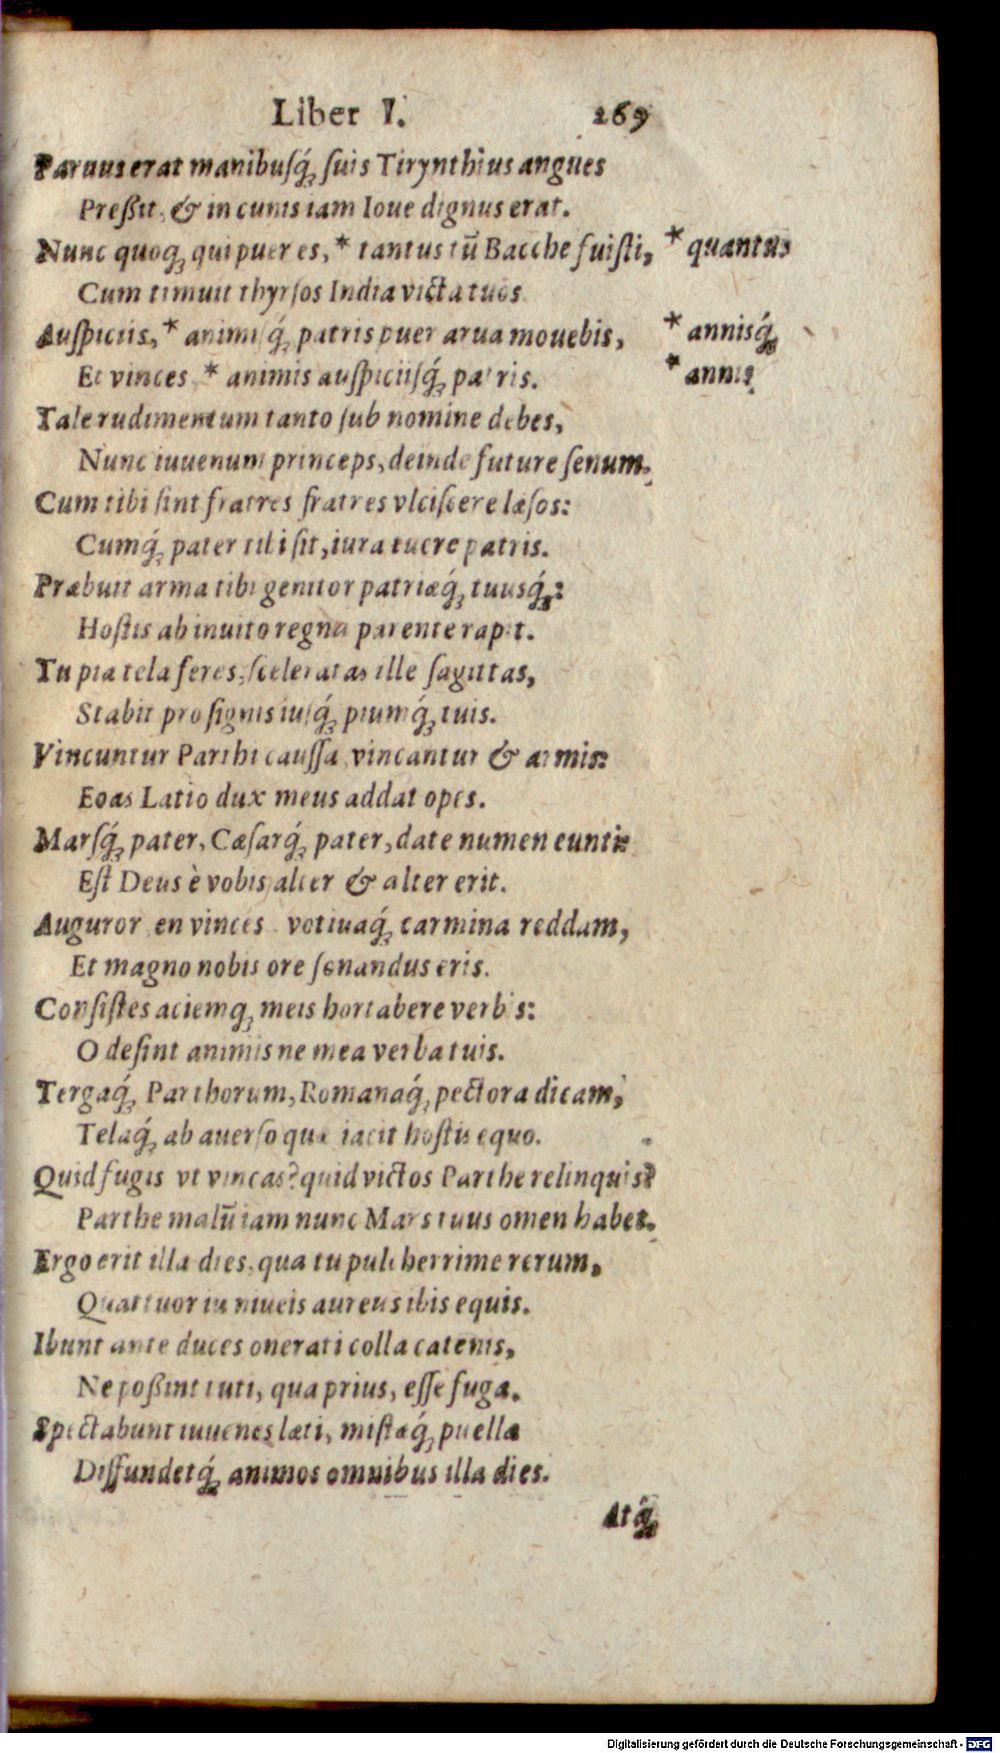 Liber I. 269
Paruus erat manibusq́; suis Tirynthius angues
Preßit, & in cunis iam Ioue dignus erat.
Nunc quoq; qui puer es, * tantus tū Bacche fuisti, * quantus
Cum timuit thyrsos India victa tuos
Auspiciis, * animisq́; patris puer arua mouebis, * annisq́;
Et vinces * animis auspiciisq́; patris. * annis
Tale rudimentum tanto sub nomine debes,
Nunc iuuenum princeps, deinde future senum.
Cum tibi sint fratres fratres vlciscere læsos:
Cumq́; pater tibi sit, iura tuere patris.
Præbuit arma tibi genitor patriæq́; tuusq́;:
Hostis ab inuito regna parente rapit.
Tu pia tela feres, sceleratas ille sagittas,
Stabit pro signis iusq́; piumq́; tuis.
Vincuntur Parthi caussa vincantur & armis:
Eoas Latio dux meus addat opes.
Marsq́; pater, Cæsarq́; pater, date numen eunti:
Est Deus è vobis alter & alter erit.
Auguror en vinces votiuaq́; carmina reddam,
Et magno nobis ore sonandus eris.
Consistes aciemq; meis hortabere verbis:
O desint animis ne mea verba tuis.
Tergaq́; Parthorum, Romanaq́; pectora dicam,
Telaq́; ab auerso quæ iacit hostis equo.
Quid fugis vt vincas? quid victos Parthe relinquis?
Parthe malū iam nunc Mars tuus omen habet.
Ergo erit illa dies, qua tu pulcherrime rerum,
Quattuor in niueis aureus ibis equis.
Ibunt ante duces onerati colla catenis,
Ne poßint tuti, qua prius, esse fuga.
Spectabunt iuuenes læti, mistæq́; puellæ
Diffundetq́; animos omnibus illa dies.
Atq́;
Digitalisierung gefördert durch die Deutsche Forschungsgemeinschaft - DFG